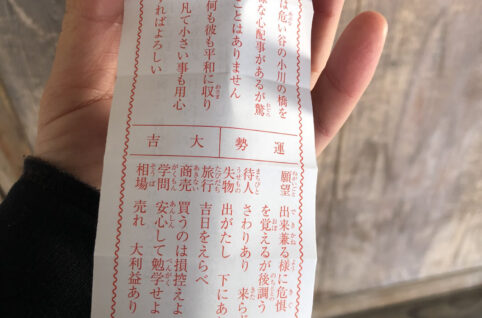 は危い谷の小川の橋を
な心配事があるが驚
ことはありません
何も彼も平和に収り
凡て小さい事も用心
すればよろしい
運勢 大吉
願望 出来兼る様に危惧
を覚えるが後調う
待人 さわりあり 来らじ
失物 出がたし 下にあ
旅行 吉日をえらべ
商売 買うのは損控えよ
学問 安心して勉学せよ
相場 売れ 大利益あり